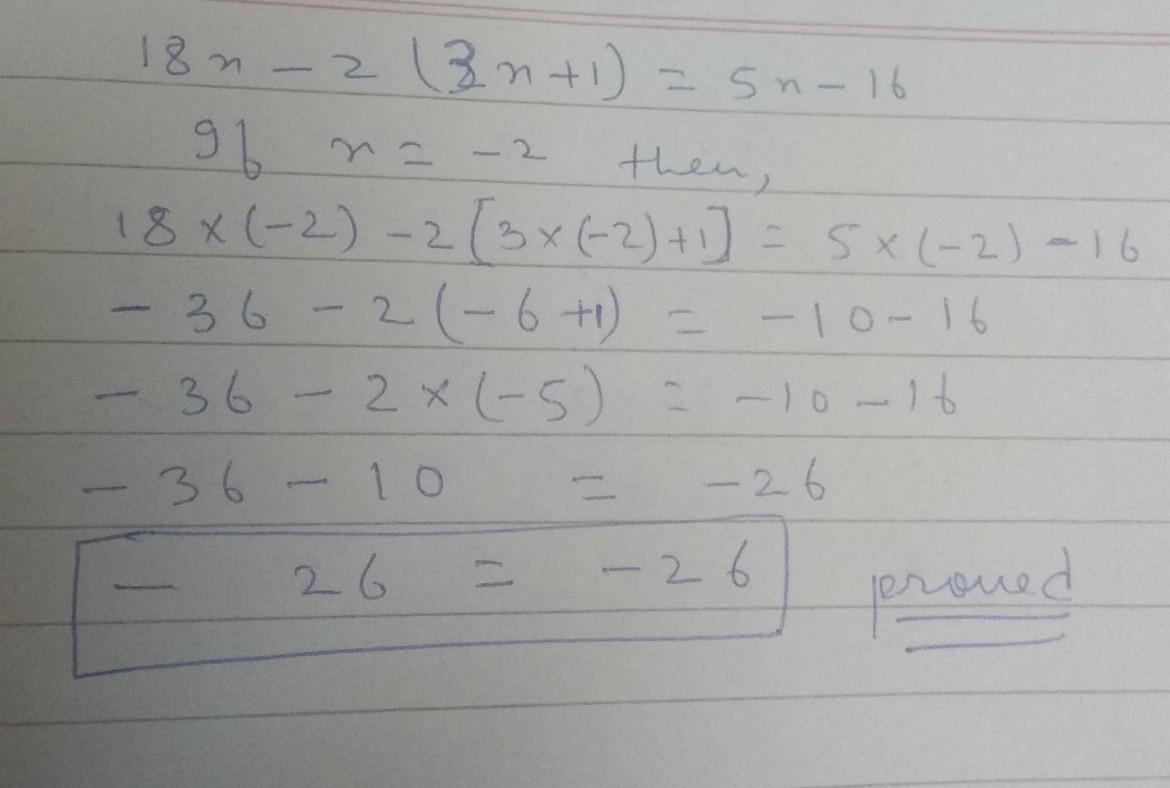 18n - 2 (3n+1) = 5n - 16
If n = -2 then,
18 × (-2) - 2 [3×(-2)+1] = 5 × (-2) - 16
- 36 - 2 (-6+1) = -10 - 16
- 36 - 2 × (-5) = -10 - 16
- 36 - 10 = -26
- 26 = -26 proved